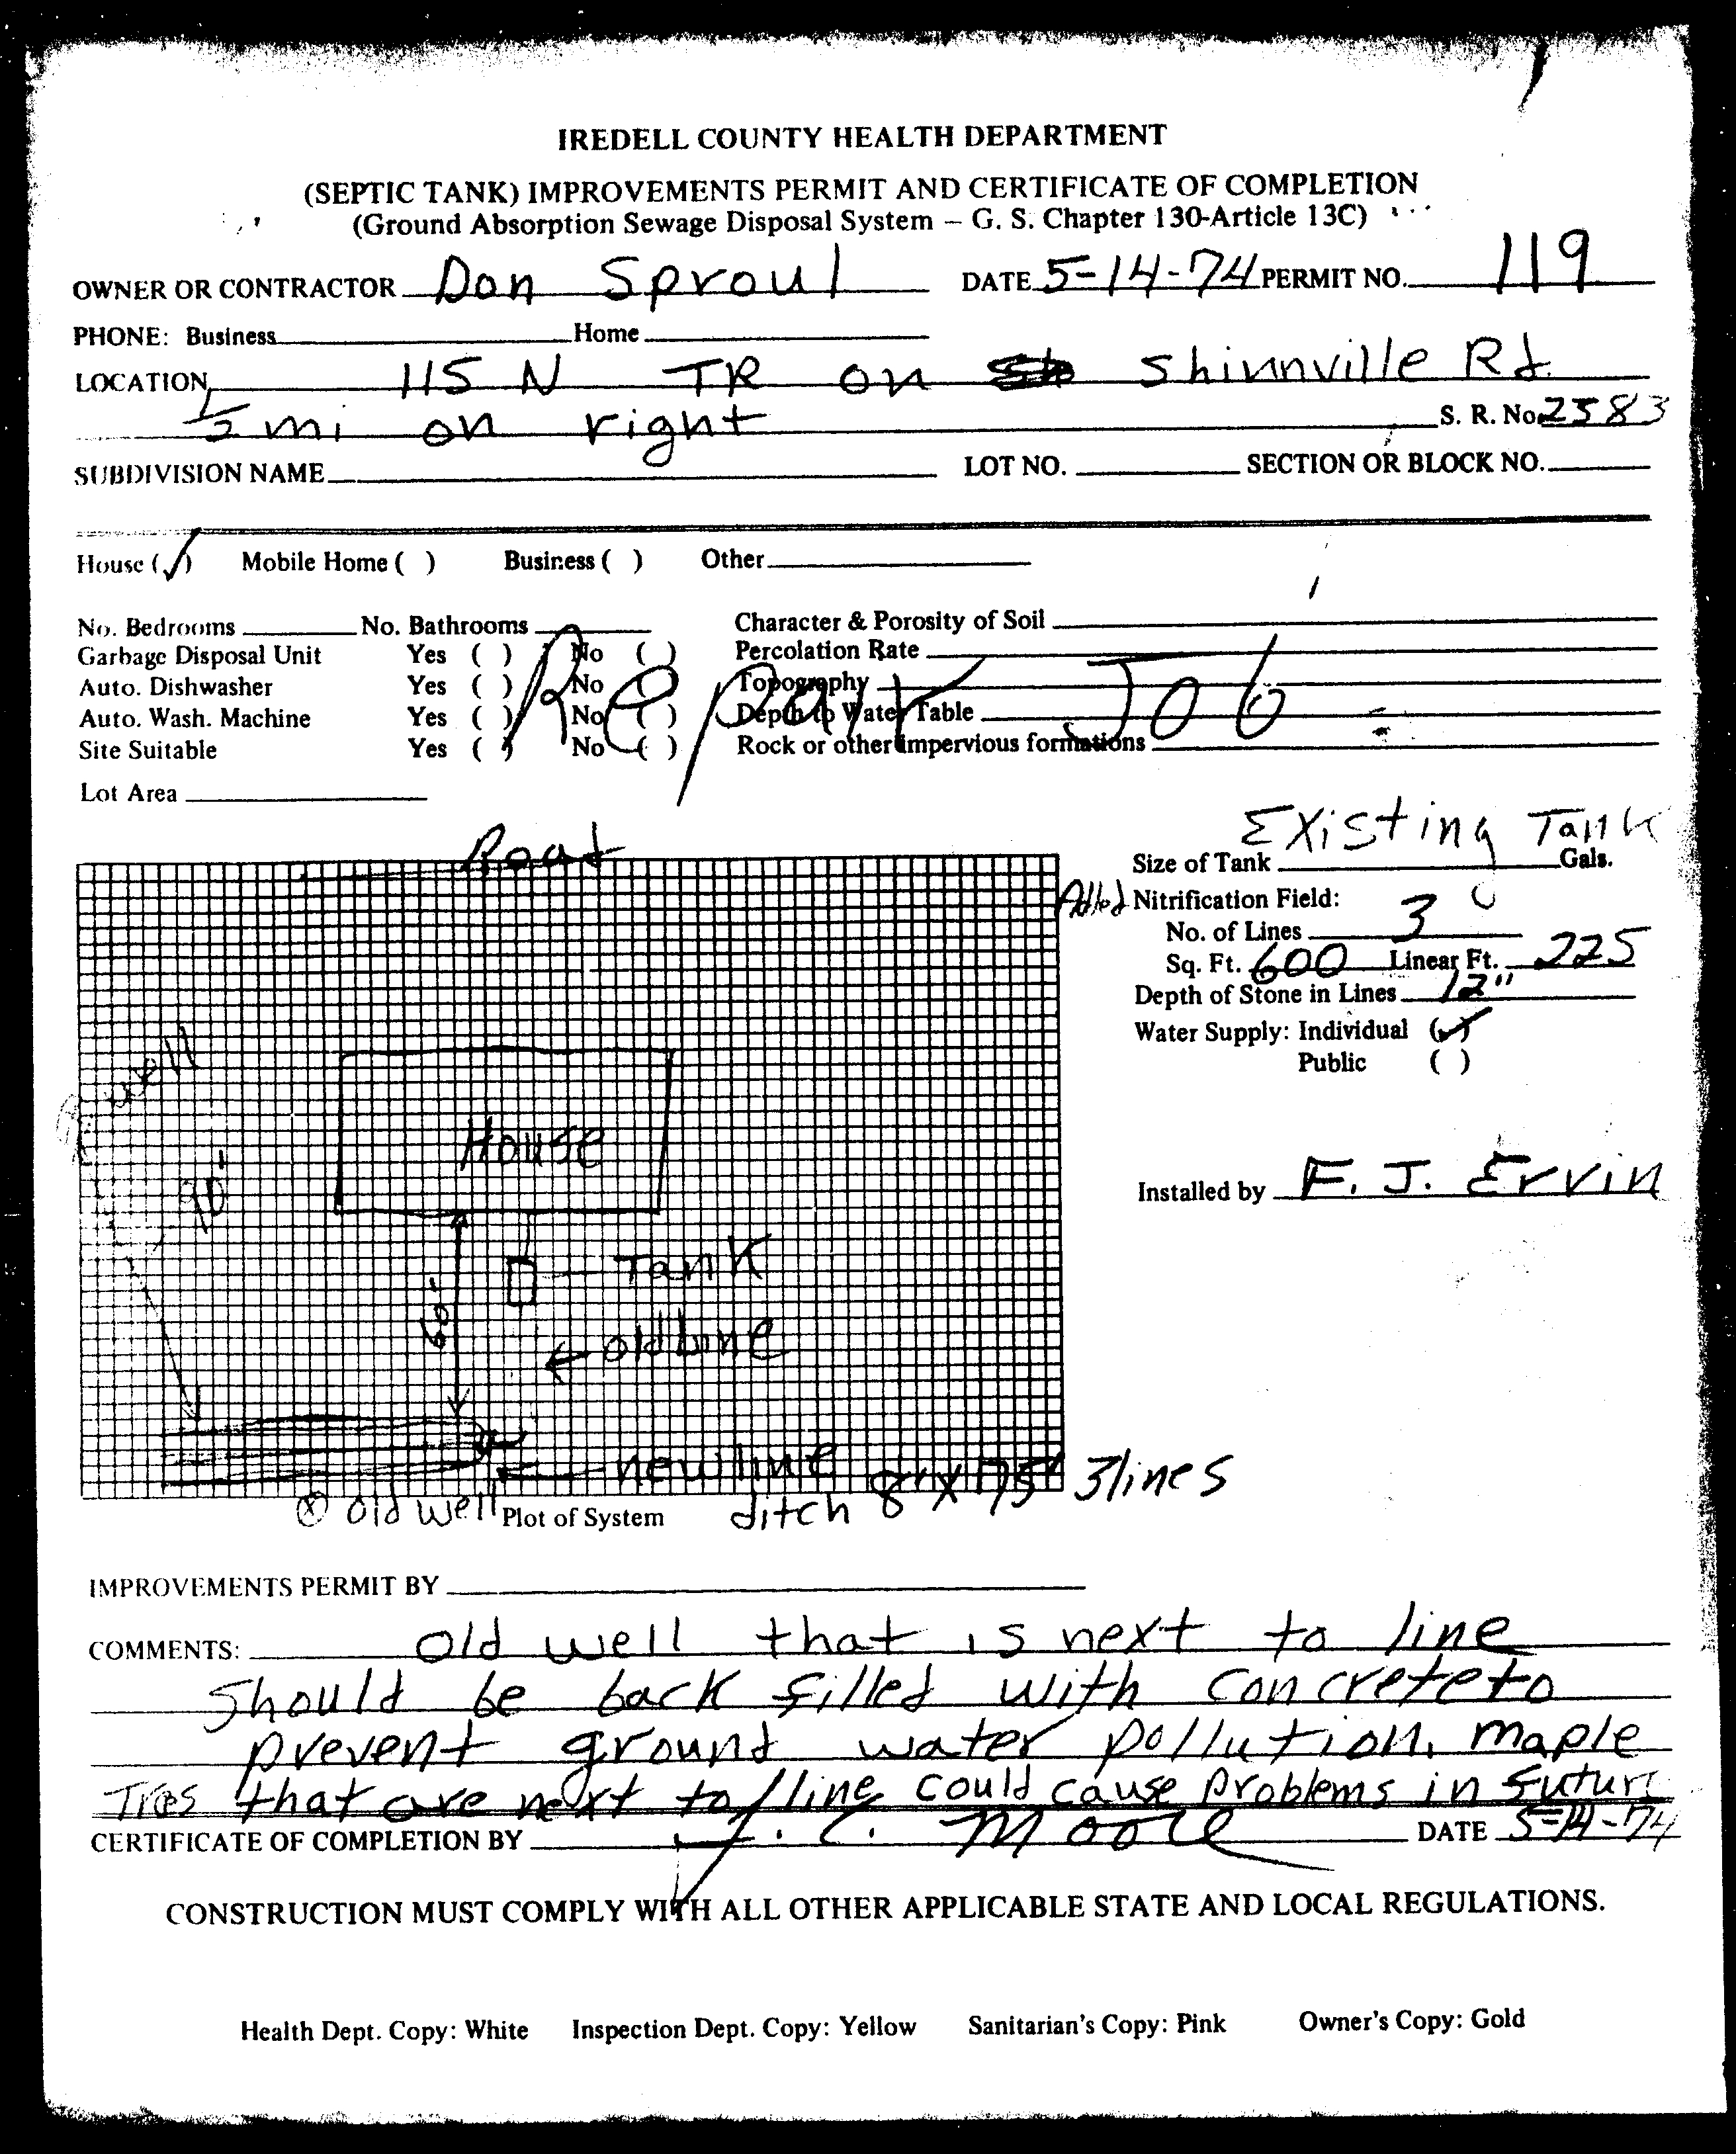 IREDELL COUNTY HEALTH DEPARTMENT
(SEPTIC TANK) IMPROVEMENTS PERMIT AND CERTIFICATE OF COMPLETION
(Ground Absorption Sewage Disposal System – G. S. Chapter 130-Article 13C)
OWNER OR CONTRACTOR Don Sproul DATE 5-14-74 PERMIT NO. 119
PHONE: Business Home
LOCATION 115 N TR on Shinnville Rd.
1/2 mi on right S. R. No. 2583
SUBDIVISION NAME LOT NO. SECTION OR BLOCK NO.
House (✓) Mobile Home ( ) Business ( ) Other
No. Bedrooms No. Bathrooms Character & Porosity of Soil
Garbage Disposal Unit Yes ( ) No ( ) Percolation Rate
Auto. Dishwasher Yes ( ) No ( ) Topography
Repair Job
Auto. Wash. Machine Yes ( ) No ( ) Depth to Water Table
Site Suitable Yes ( ) No ( ) Rock or other impervious formations
Lot Area
Road
Existing Tank
Size of Tank Gals.
Added Nitrification Field:
No. of Lines 3
Sq. Ft. 600 Linear Ft. 225
Depth of Stone in Lines 12"
Water Supply: Individual (✓)
Public ( )
well
House
90'
Installed by F. J. Ervin
Tank
60'
old Line
new line
ditch 8" x 75' 3 lines
old well Plot of System
IMPROVEMENTS PERMIT BY
COMMENTS: Old well that is next to line
Should be back filled with concrete to
prevent ground water pollution. maple
Tres that are next to line could cause problems in future
CERTIFICATE OF COMPLETION BY J. C. Moore DATE 5-14-74
CONSTRUCTION MUST COMPLY WITH ALL OTHER APPLICABLE STATE AND LOCAL REGULATIONS.
Health Dept. Copy: White Inspection Dept. Copy: Yellow Sanitarian's Copy: Pink Owner's Copy: Gold